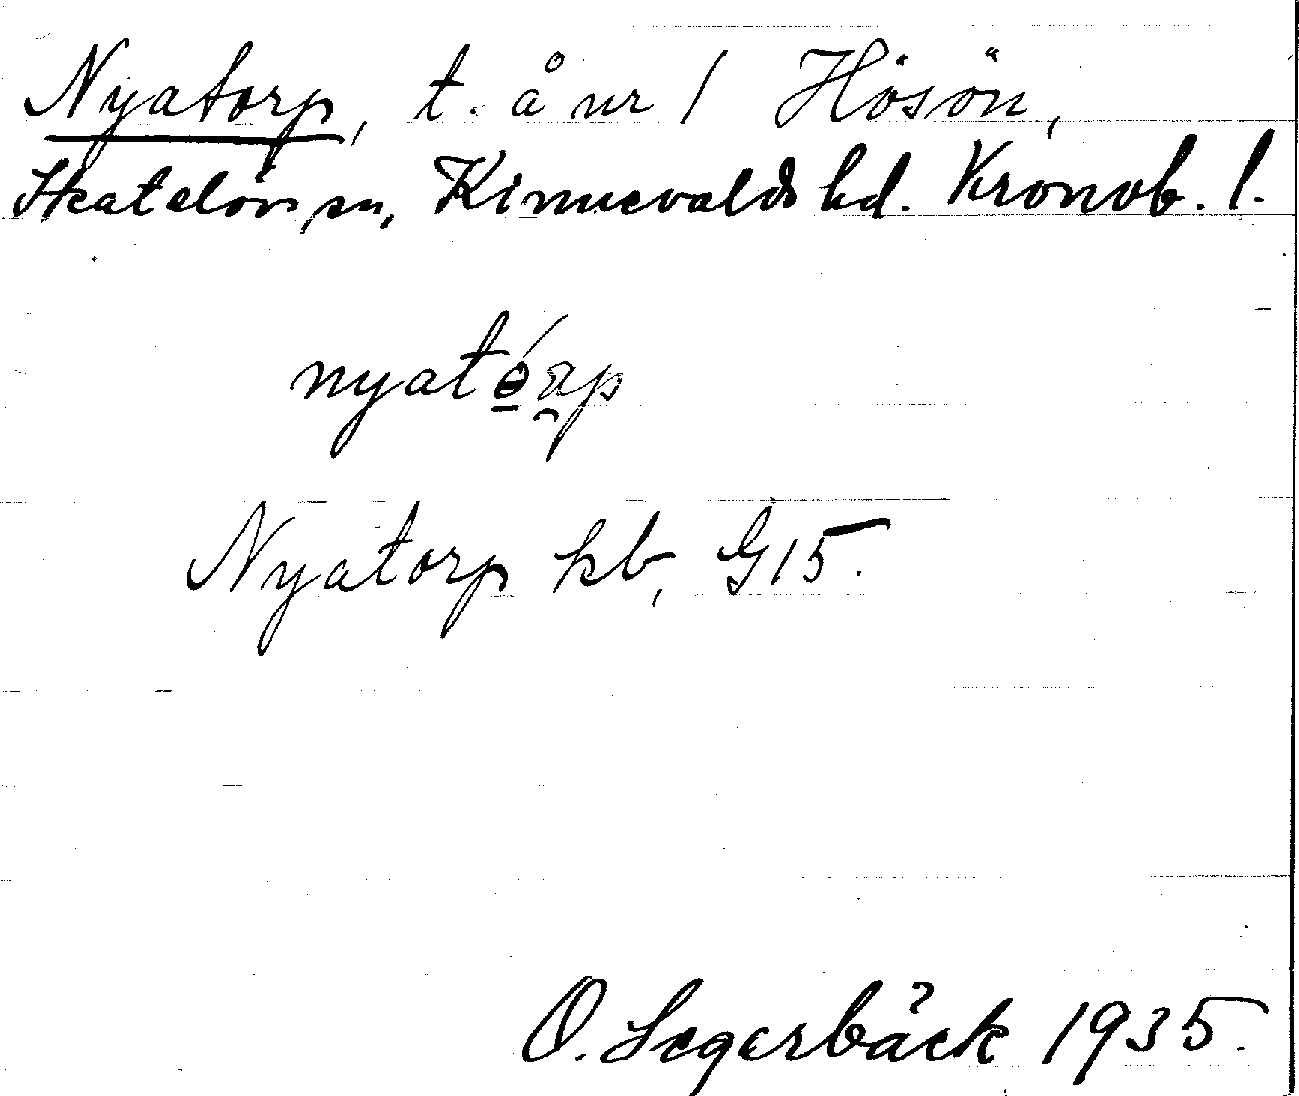 Nyatorp, t. å nr 1 Hösön,
Skatelövs sn, Kinnevalds hd. Kronob. l.
Nyatorp kb, G15.
O. Segerbäck 1935.